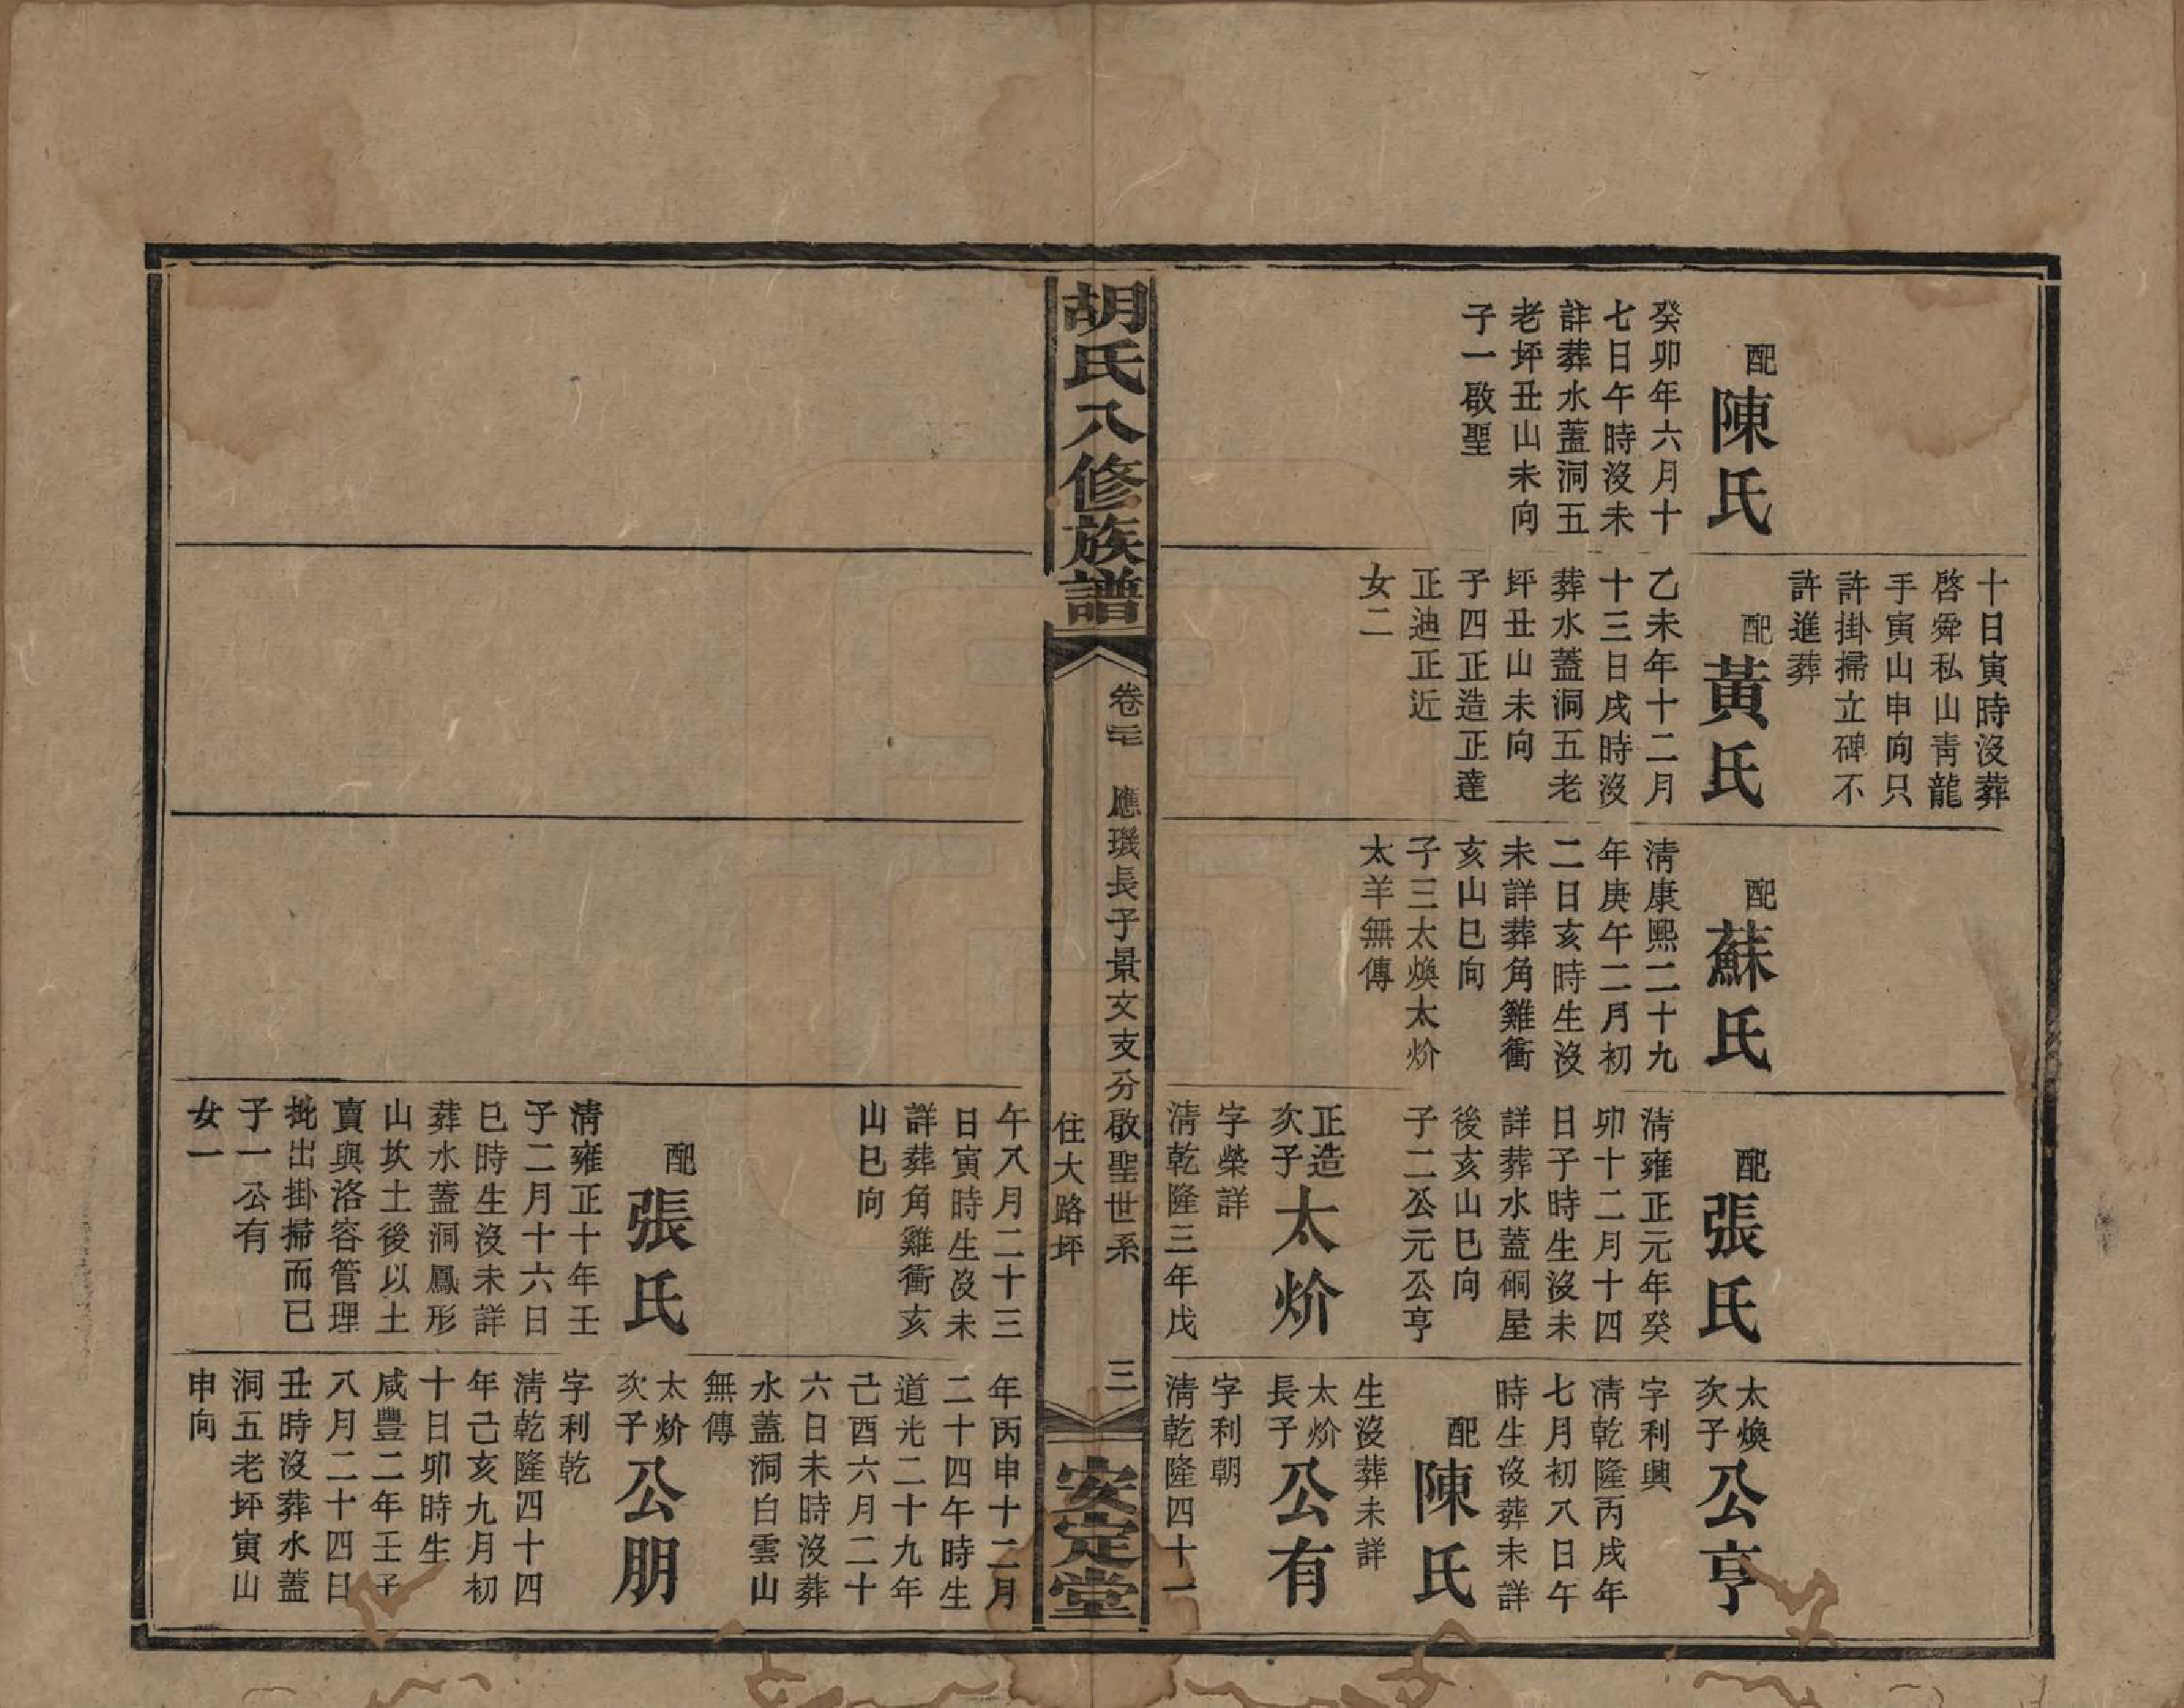 配
陳氏
癸卯年六月十
七日午時沒未
詳葬水蓋洞五
老坪丑山未向
子一啟聖
十日寅時沒葬
啓舜私山靑龍
手寅山申向只
許掛掃立碑不
許進葬
配
黃氏
乙未年十二月
十三日戌時沒
葬水蓋洞五老
坪丑山未向
子四正造正達
正迪正近
女二
配
蘇氏
淸康熙二十九
年庚午二月初
二日亥時生沒
未詳葬角雞衝
亥山巳向
子三太煥太炌
太羊無傳
配
張氏
淸雍正元年癸
卯十二月十四
日子時生沒未
詳葬水蓋硐屋
後亥山巳向
子二公元公亨
正造
次子
太炌
字榮詳
淸乾隆三年戊
太煥
次子
公亨
字利興
淸乾隆丙戌年
七月初八日午
時生沒葬未詳
配
陳氏
生沒葬未詳
太炌
長子
公有
字利朝
淸乾隆四十一
胡氏八修族譜
卷三
應璣長子景文支分啟聖世系
住大路坪
三
安定堂
午八月二十三
日寅時生沒未
詳葬角雞衝亥
山巳向
配
張氏
淸雍正十年壬
子二月十六日
巳時生沒未詳
葬水蓋洞鳳形
山坎土後以土
賣與洛容管理
批出掛掃而已
子一公有
女一
年丙申十二月
二十四午時生
道光二十九年
己酉六月二十
六日未時沒葬
水蓋洞白雲山
無傳
太炌
次子
公朋
字利乾
淸乾隆四十四
年己亥九月初
十日卯時生
咸豐二年壬子
八月二十四日
丑時沒葬水蓋
洞五老坪寅山
申向